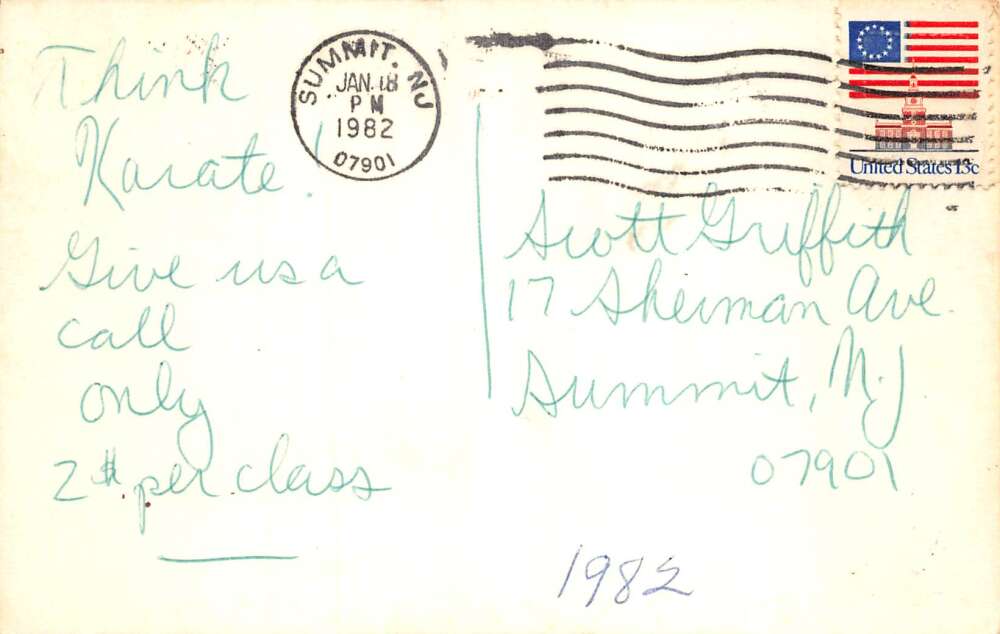 Think
Karate!
Give us a
call
only
2$ per class
SUMMIT, NJ
JAN 18
PM
1982
07901
United States 13c
Scott Griffith
17 Sherman Ave.
Summit, N.J
07901
1982